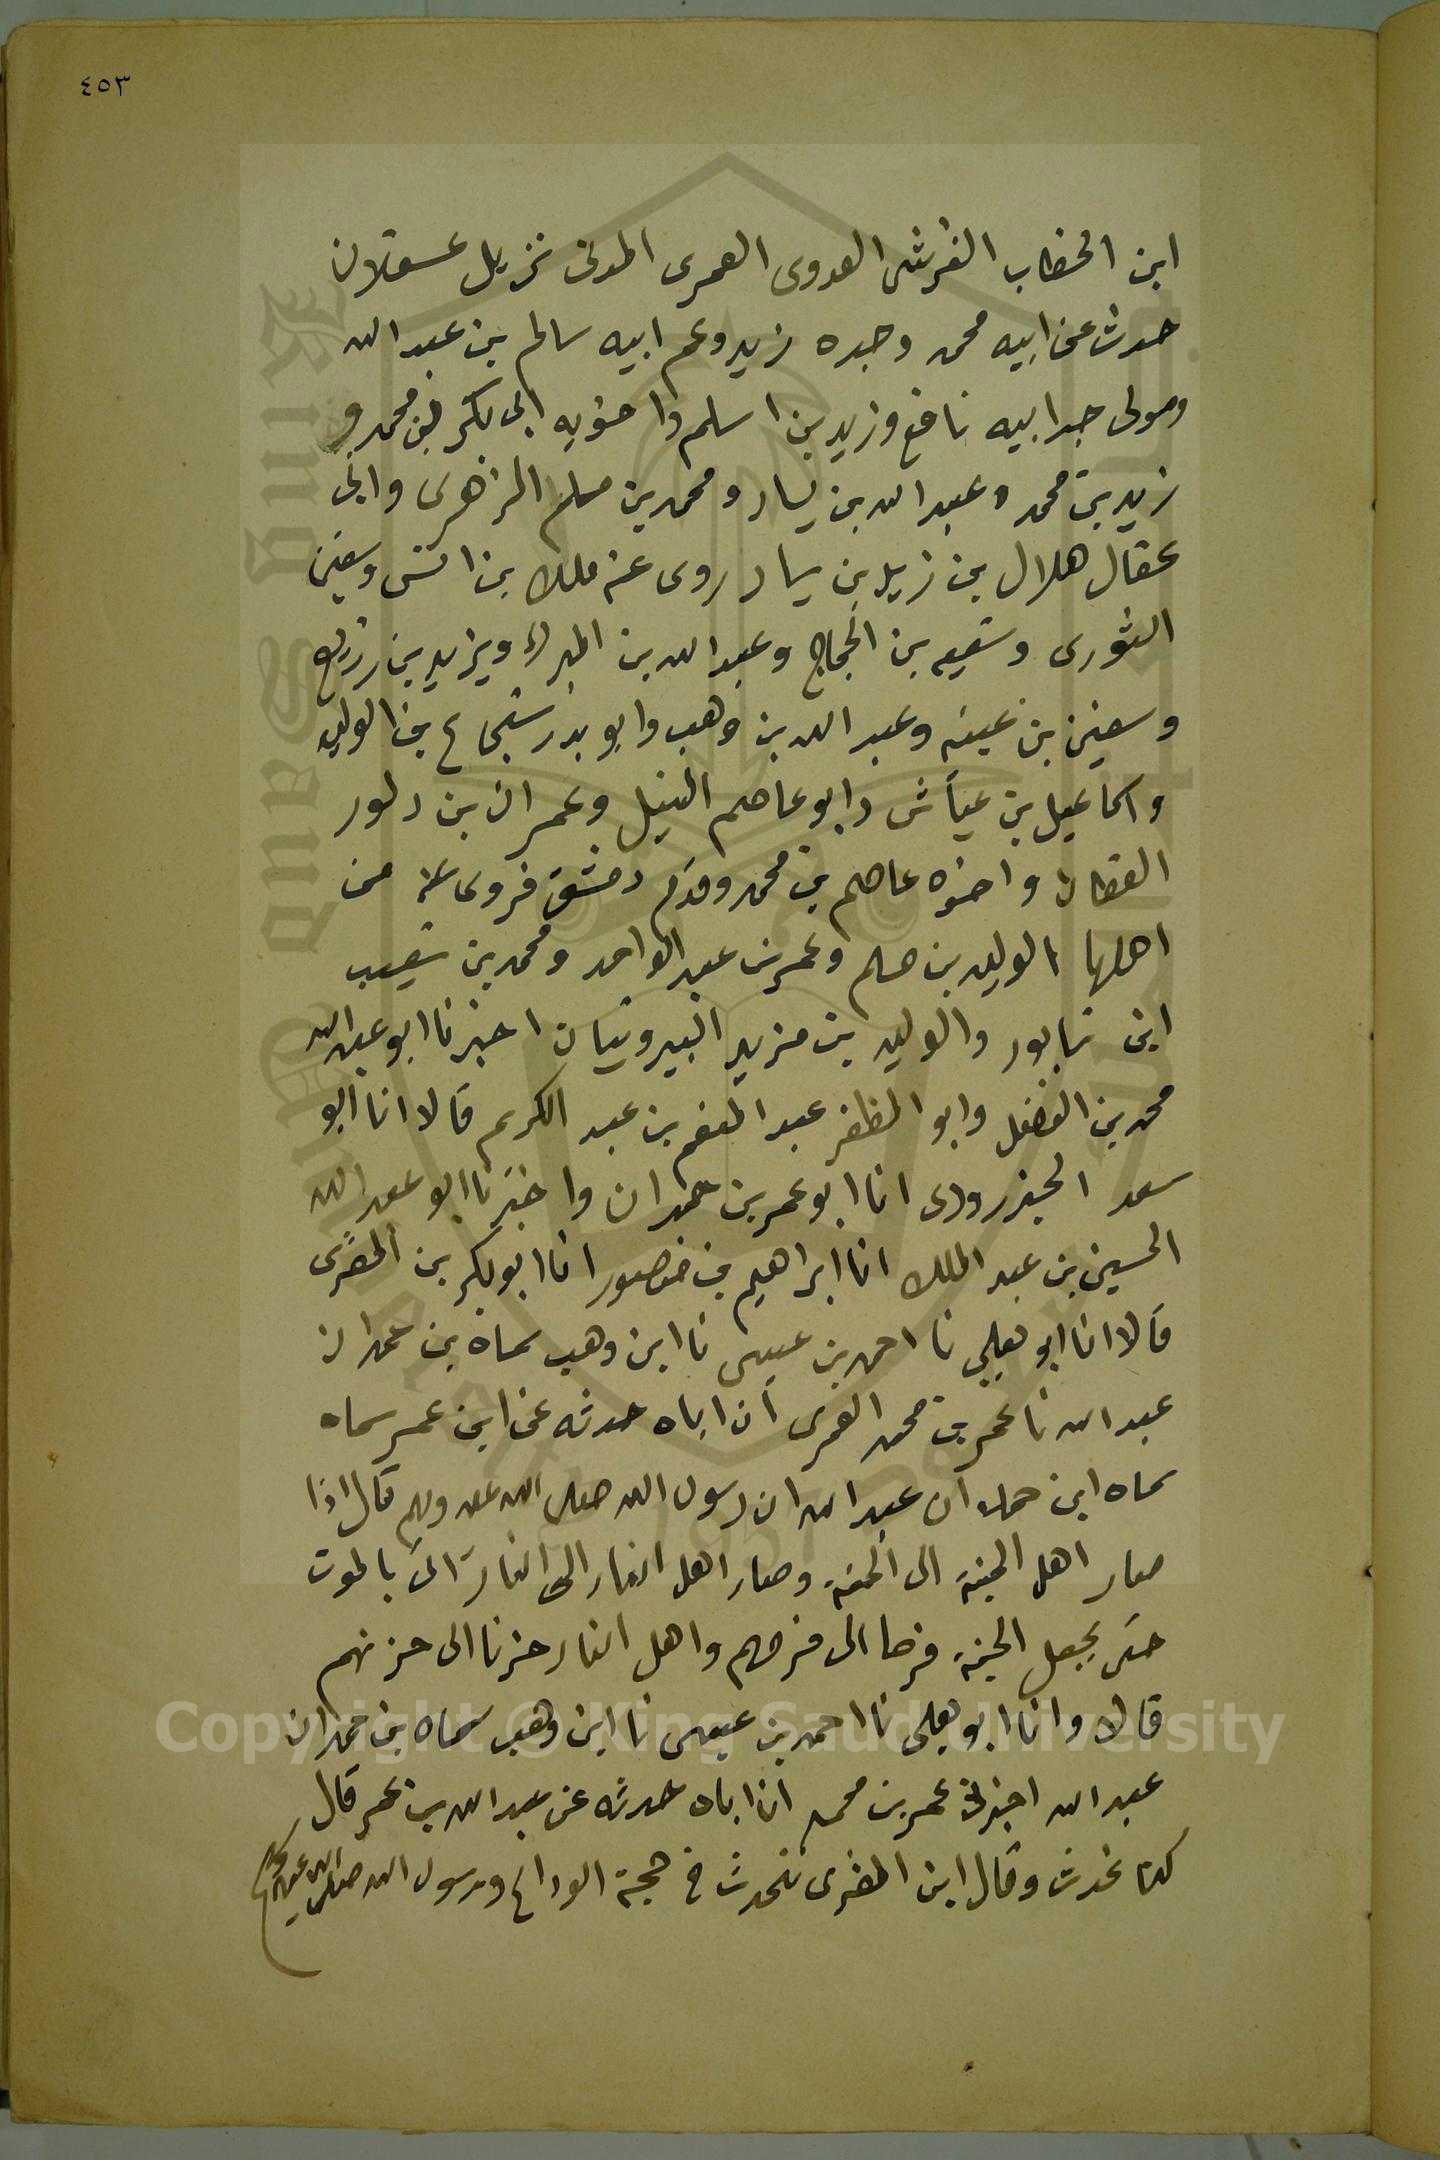 ٤٥٣
ابن الخطاب القرشى العدوى العمرى المدنى نزيل عسقلان
حدث عن ابيه محمد وجده زيد وعم ابيه سالم بن عبد الله
ومولى جد ابيه نافع وزيد بن اسلم واخويه ابى بكر بن محمد و
زيد بن محمد وعبد الله بن يسار ومحمد بن مسلم الزهرى وابى
عقال هلال بن زيد بن يسار روى عنه ملك بن انس وسفين
الثورى وشعبه بن الحجاج وعبد الله بن المبرك ويزيد بن زريع
وسفين بن عيينه وعبد الله بن وهب وابو بدر شجاع بن الوليد
واسماعيل بن عياش وابو عاصم النبيل وعمران بن داور
القطان واخوه عاصم بن محمد وقدم دمشق فروى عنه من
اهلها الوليد بن مسلم وعمر بن عبد الواحد ومحمد بن شعيب
ابن شابور والوليد بن مزيد البيروتيان اخبرنا ابو عبد الله
محمد بن الفضل وابو المظفر عبد المنعم بن عبد الكريم قالا انا ابو
سعد الجنزرودى انا ابو عمر بن حمدان واخبرنا ابو عبد الله
الحسين بن عبد الملك انا ابراهيم بن منصور انا ابو بكر بن المقرى
قالا انا ابو يعلى نا احمد بن عيسى نا ابن وهب سماه بن حمدان
عبد الله نا عمر بن محمد العمرى ان اباه حدثه عن ابن عمر سماه
سماه ابن حمدان عبد الله ان رسول الله صلى الله عليه وسلم قال اذا
صار اهل الجنة الى الجنة وصار اهل النار الى النار اتى بالموت
حتى يجعل الجنة فرحا الى فرحهم واهل النار حزنا الى حزنهم
قالا وانا ابو يعلى نا احمد بن عيسى نا ابن وهب سماه بن حمدان
عبد الله اخبرنى عمر بن محمد ان اباه حدثه عن عبد الله بن عمر قال
كنا نحدث وقال ابن المقرى نتحدث فى حجة الوداع ورسول الله صلى الله عليه وسلم
Copyright © King Saud University